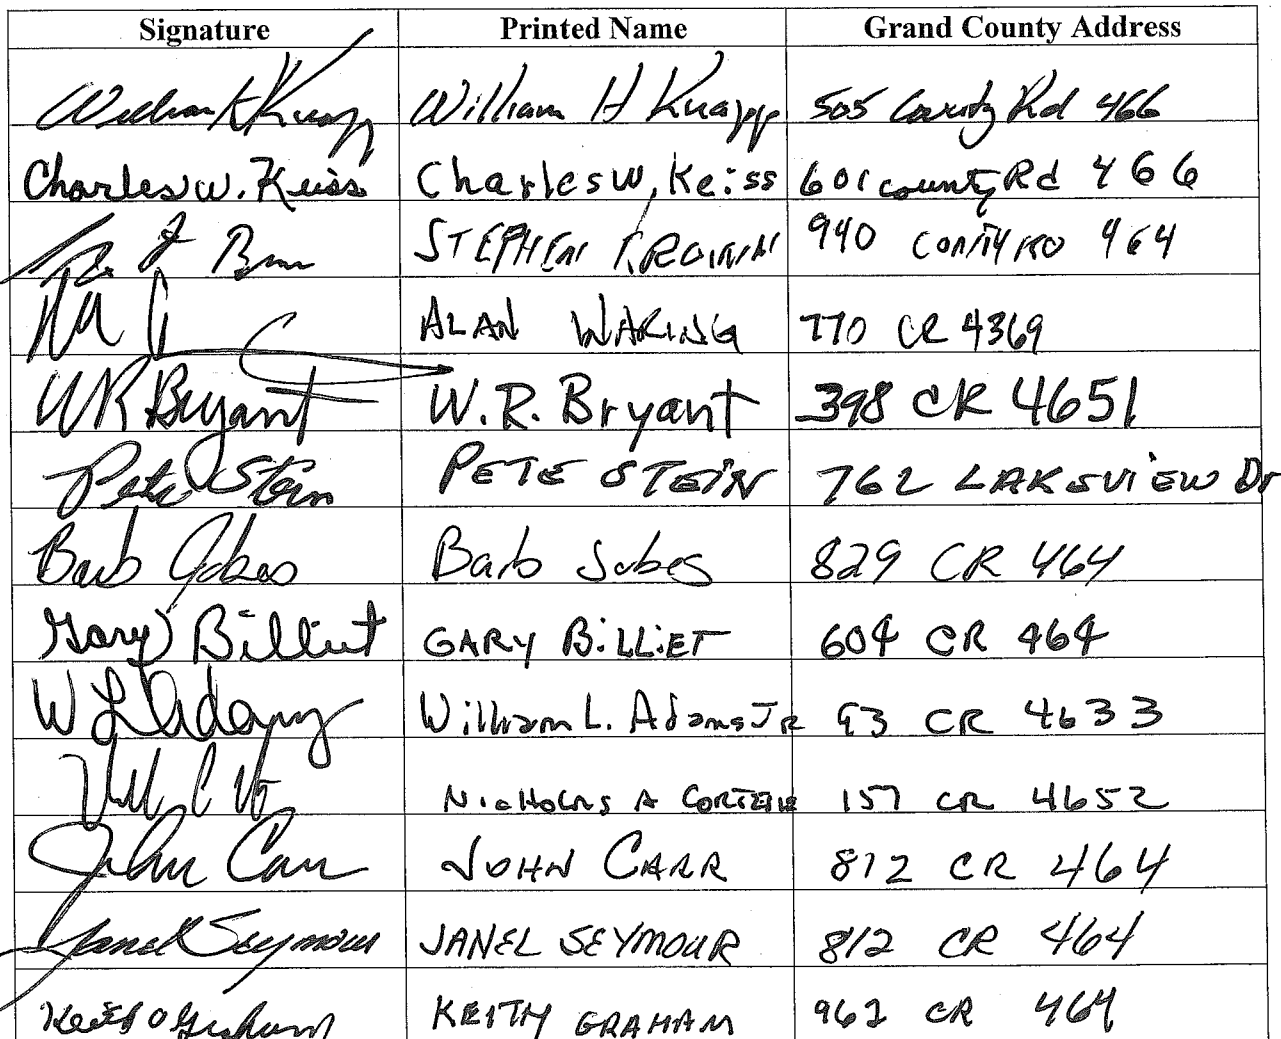 Signature Printed Name Grand County Address
William H Knapp William H Knapp 505 County Rd 466
Charles W. Keiss Charles W. Keiss 601 County Rd 466
STEPHEN 940 464
ALAN WARING 770 CR 4369
WR Bryant W.R. Bryant 398 CR 4651
Pete Stein PETE STEIN 762 LAKEVIEW Dr
Barb Jobes Barb Jobes 829 CR 464
Gary Billiet GARY BiLLiET 604 CR 464
W L Adams William L. Adams JR 93 CR 4633
Nicholas A 157 CR 4652
John Carr JOHN CARR 812 CR 464
Janel Seymour JANEL SEYMOUR 812 CR 464
Keith O Graham KEITH GRAHAM 962 CR 464